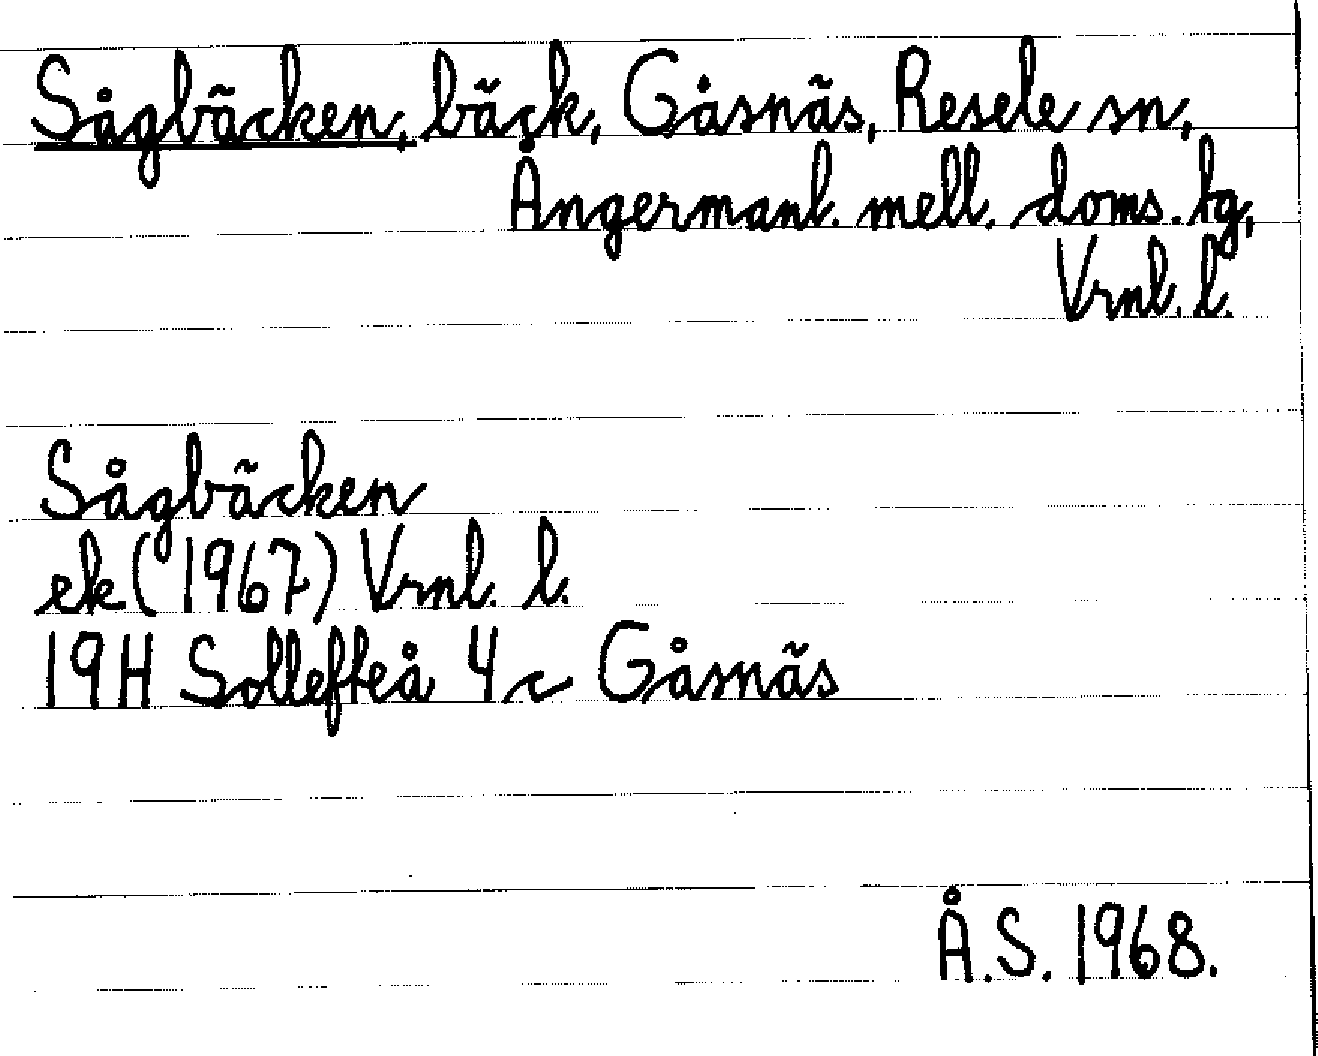 Sågbäcken, bäck, Gåsnäs, Resele sn,
Ångermanl. mell. doms. tg,
Vrnl. l.
Sågbäcken
ek (1967) Vrnl. l.
19H Sollefteå 4c Gåsnäs
Å.S. 1968.